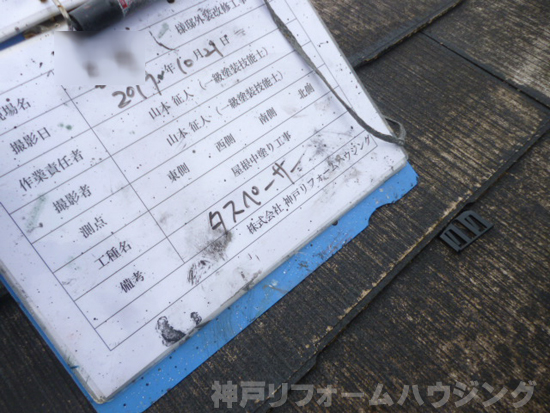 様邸外装改修工事
現場名
撮影日 2017年10月27日
作業責任者 山本 征人（一級塗装技能士）
撮影者 山本 征人（一級塗装技能士）
測点 東側 西側 南側 北面
工種名 屋根中塗り工事
備考 タスペーサー
株式会社 神戸リフォームハウジング
神戸リフォームハウジング